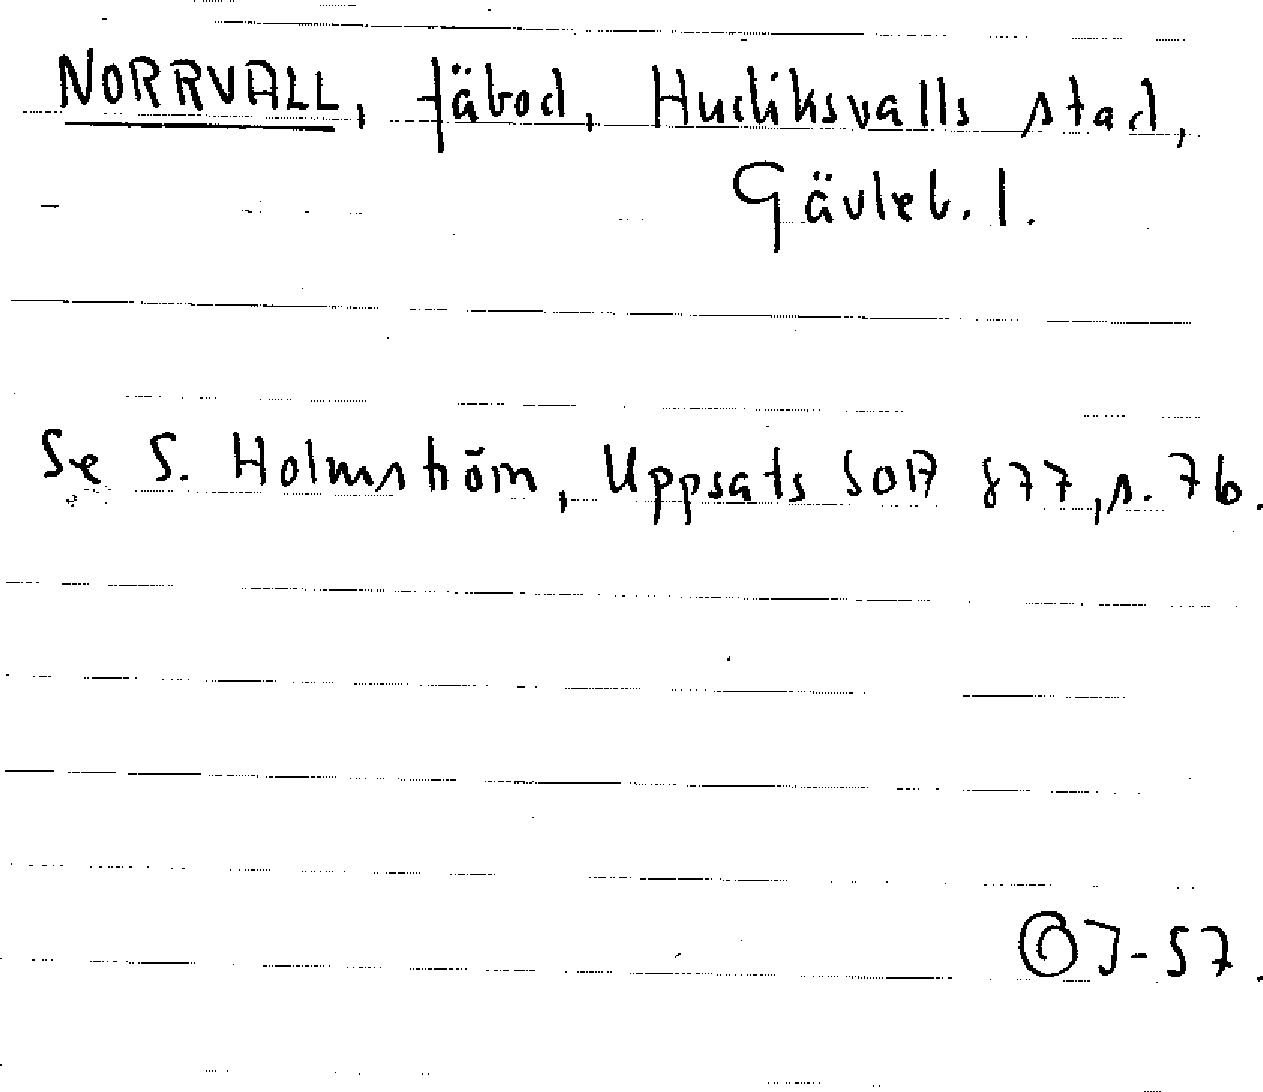 NORRVALL, fäbod, Hudiksvalls stad,
Gävleb. l.
Se S. Holmström, Uppsats SOA 877, s. 76.
OJ-57.